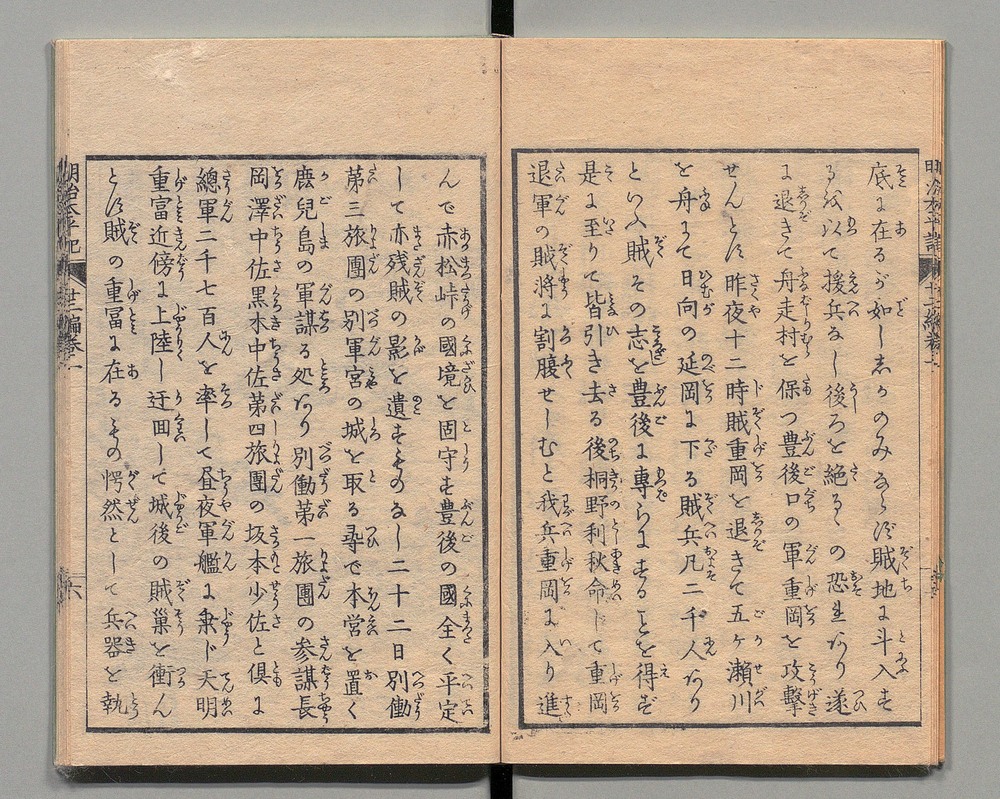 底に在るが如し志かのみならず賊地に斗入す
るを以て援兵なし後ろを絶るゝの恐れあり遂
に退きて舟走村を保つ豊後口の軍重岡を攻撃
せんとす昨夜十二時賊重岡を退きて五ヶ瀬川
を舟にて日向の延岡に下る賊兵凡二千人なり
といふ賊その志を豊後に専らにすることを得ず
是に至りて皆引き去る後桐野利秋命じて重岡
退軍の賊将に割腹せしむと我兵重岡に入り進
んで赤松峠の國境を固守す豊後の國全く平定
して亦残賊の影を遺すものなし二十二日別働
第三旅團の別軍宮の城を取る尋で本営を置く
鹿兒島の軍謀る処あり別働第一旅團の参謀長
岡澤中佐黒木中佐第四旅團の坂本少佐と倶に
總軍二千七百人を率して昼夜軍艦に乗じ天明
重富近傍に上陸し迂回して城後の賊巣を衝ん
とす賊の重冨に在るもの愕然として兵器を執
明治太平記
十二編巻之一
六